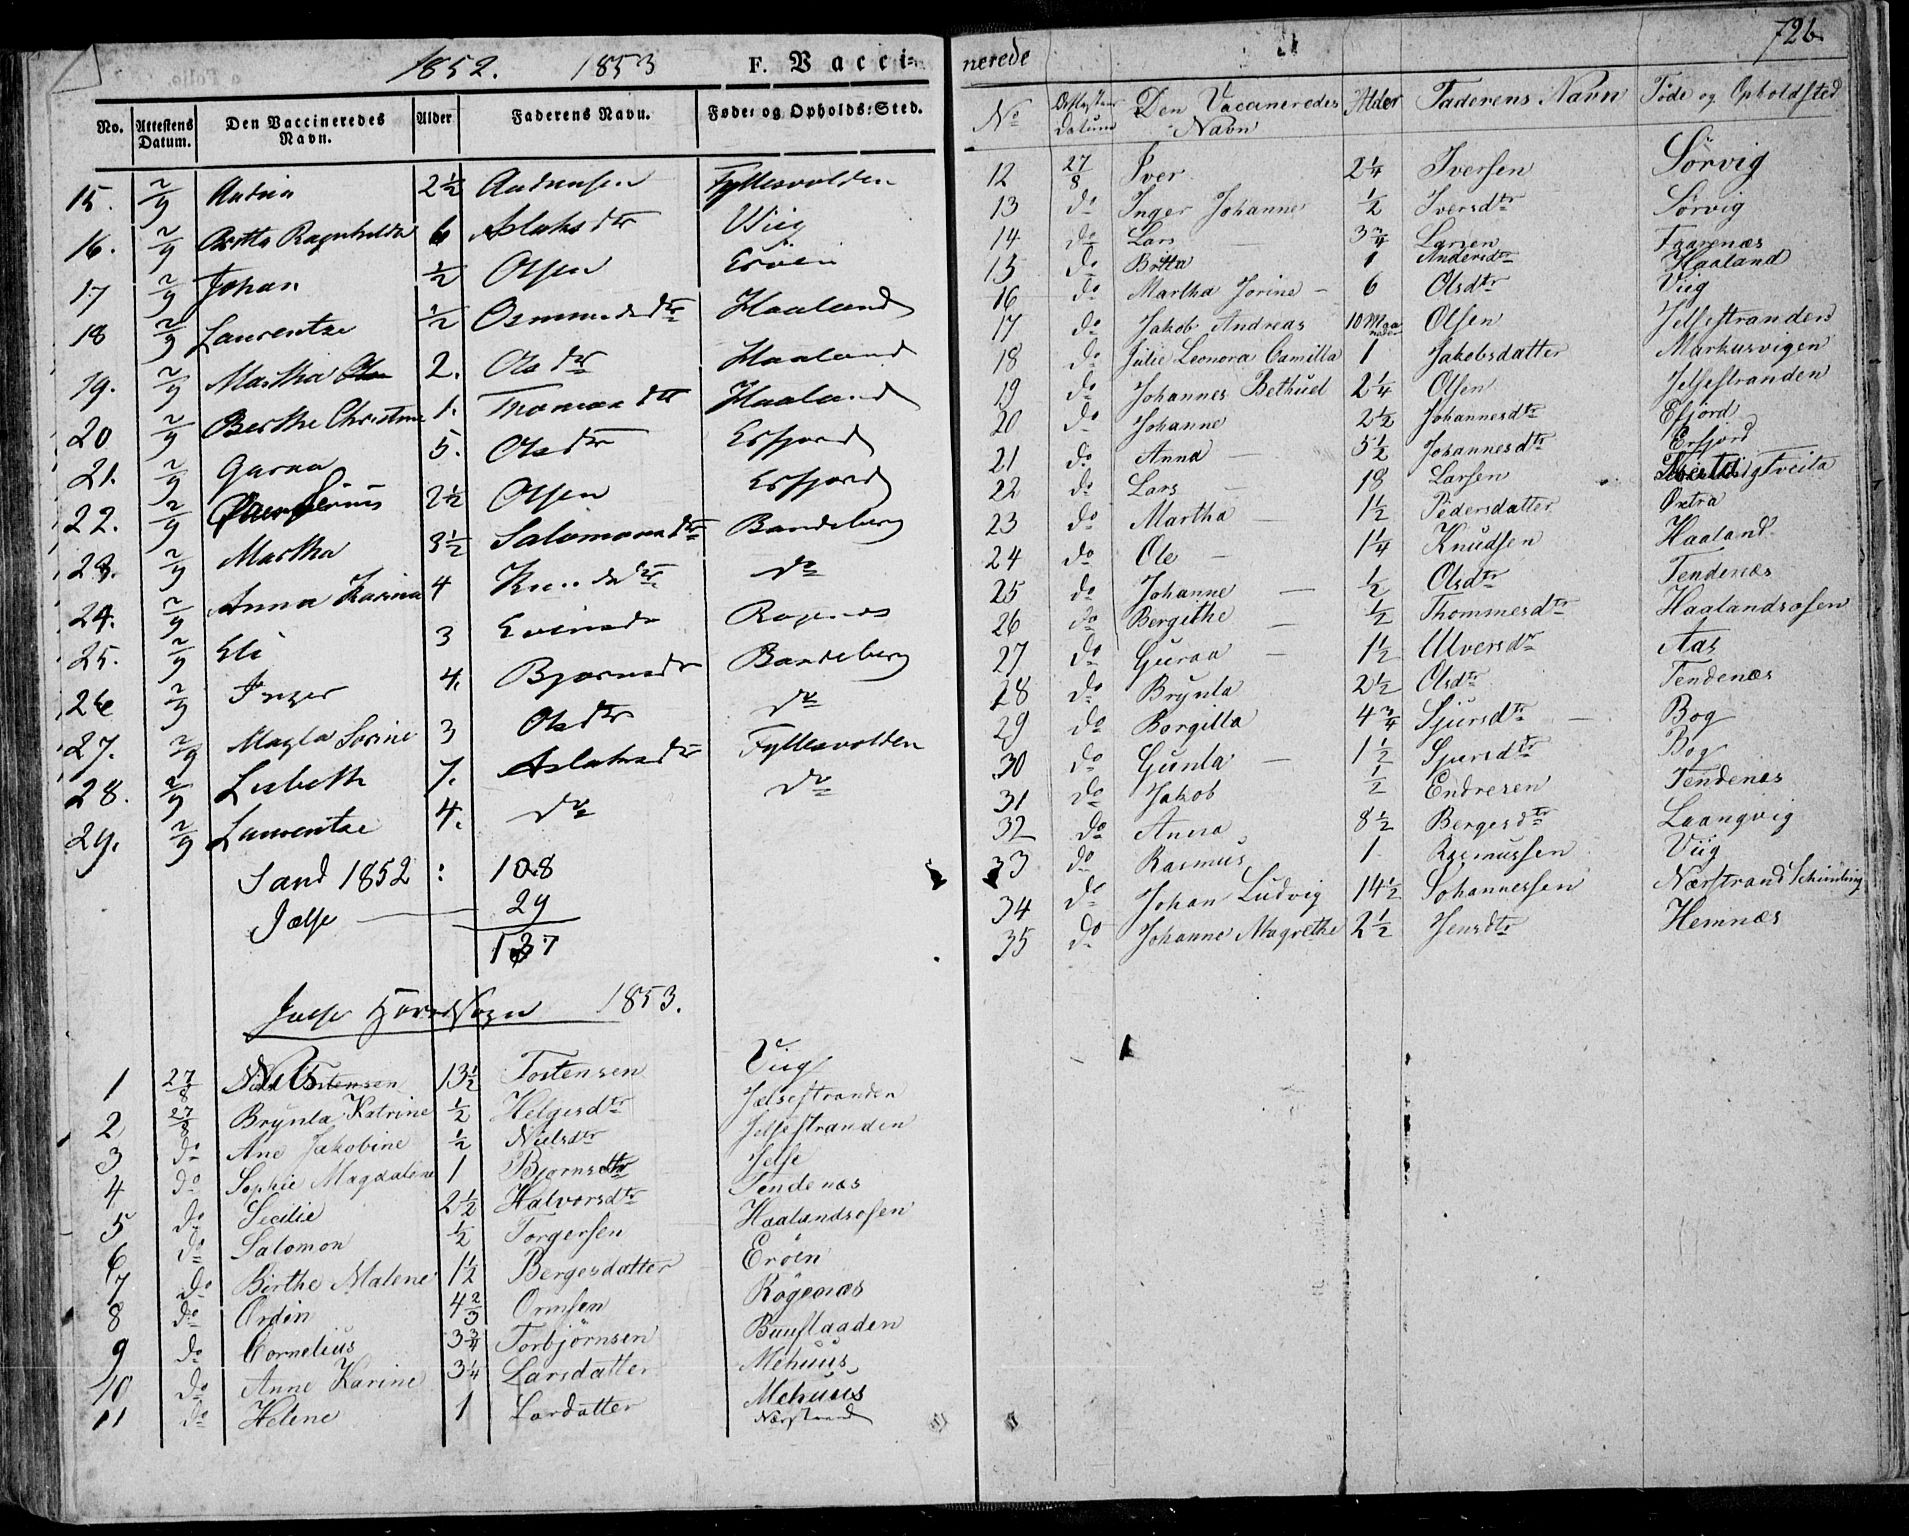 1852. 1853 F. Vacci=
No. Attestens Datum. Den Vaccineredes Navn. Alder Faderens Navn. Føde= og Opholds=Sted.
15. 2/9 2½ Fyllesvolden
16. 2/9 Britta Ragnhilda 6 Aslaksdtr Viig
17 2/9 Johan ½ Olsen Erøen
18 2/9 Laurentze ½ Osmundsdtr Haaland
19. 2/9 Martha 2. Olsdtr Haaland
20 2/9 Berthe Christine 1. Thomasdtr Haaland
21. 2/9 Guraa 5. Olsdtr Erfjord
22. 2/9 2½ Olsen Erfjord
23. 2/9 Martha 3½ Salomonsdtr Bandeberg
24. 2/9 Anna Karina 4 Knudsdtr do
25. 2/9 Eli 3
26 2/9 Inger 4. Bjørnsdtr Bandeberg
27. 2/9 Magla Sorine 3 Olsdtr do
28. 2/9 Lisbeth 7. Aslaksdtr Fyllesvolden
29. 2/9 Laurentze 4. do do
Sand 1852 : 108
Jælse 29
137
Jælse Hovedsogn 1853.
1 27/8 Nils 13½ Tostensen Viig
2 27/8 Brynla Katrine ½ Helgesdtr Jælsestranden
3 do Ane Jakobine ½ Nielsdtr Jelsestranden
4 do Sophie Magdalene 1 Bjørnsdtr Jelse
5 do Secilie 2½ Halvorsdtr Tendenæs
6 do Salomon ½ Torgersen Haalandsosen
7 do Birthe Malene 1½ Bergesdatter Erøen
8 do Ordin 4⅔ Ormsen Røgenæs
9 do Cornelius 3¾ Torbjørnsen Buustaaden
10 do Anne Karine 3¼ Larsdatter Mehuus
11 do Helene 1 Lardatter Mehuus
Nærstrand
nerede 726
No Attestens Datum Den Vaccineredes Navn Alder Faderens Navn Føde og Opholdsted
12 27/8 Iver 2¼ Iversen Sörvig
13 do Inger Johanne ½ Iversdtr Sörvig
14 do Lars 3¾ Larsen Faarenæs
15 do Britta 1 Andersdtr Haaland
16 do Martha Jorine 6 Olsdtr Viig
17 do Jakob Andreas 10 Maaneder Olsen Jelsestranden
18 do Julie Leonora Camilla 1 Jakobsdatter Markusvigen
19 do Johannes Bethuel 2¼ Olsen Jelsestranden
20 do Johanne 2½ Johannesdtr Efjörd
21 do Anna 5½ Johannesdtr Erfjord
22 do Lars 18 Larsen
23 do Martha 1½ Pedersdatter Østra
24 do Ole 1¼ Knudsen Haaland
25 do Johanne ½ Olsdtr Tendenæs
26 do Bergithe ½ Thommesdtr Haalandsosen
27 do Guraa 1½ Ulversdtr Aas
28 do Brynla 2½ Olsdtr Tendenæs
29 do Borgilla 4¾ Sjursdtr Bog
30 do Gunla 1½ Sjursdtr Bog
31 do Jakob ½ Endresen Tendenæs
32 do Anna 8½ Bergesdtr Laangvig
33 do Rasmus 1 Rasmussen Viig
34 do Johan Ludvig 14½ Johannessen Nærstrand
35 do Johanne Magrethe 2½ Jensdtr Hemnæs